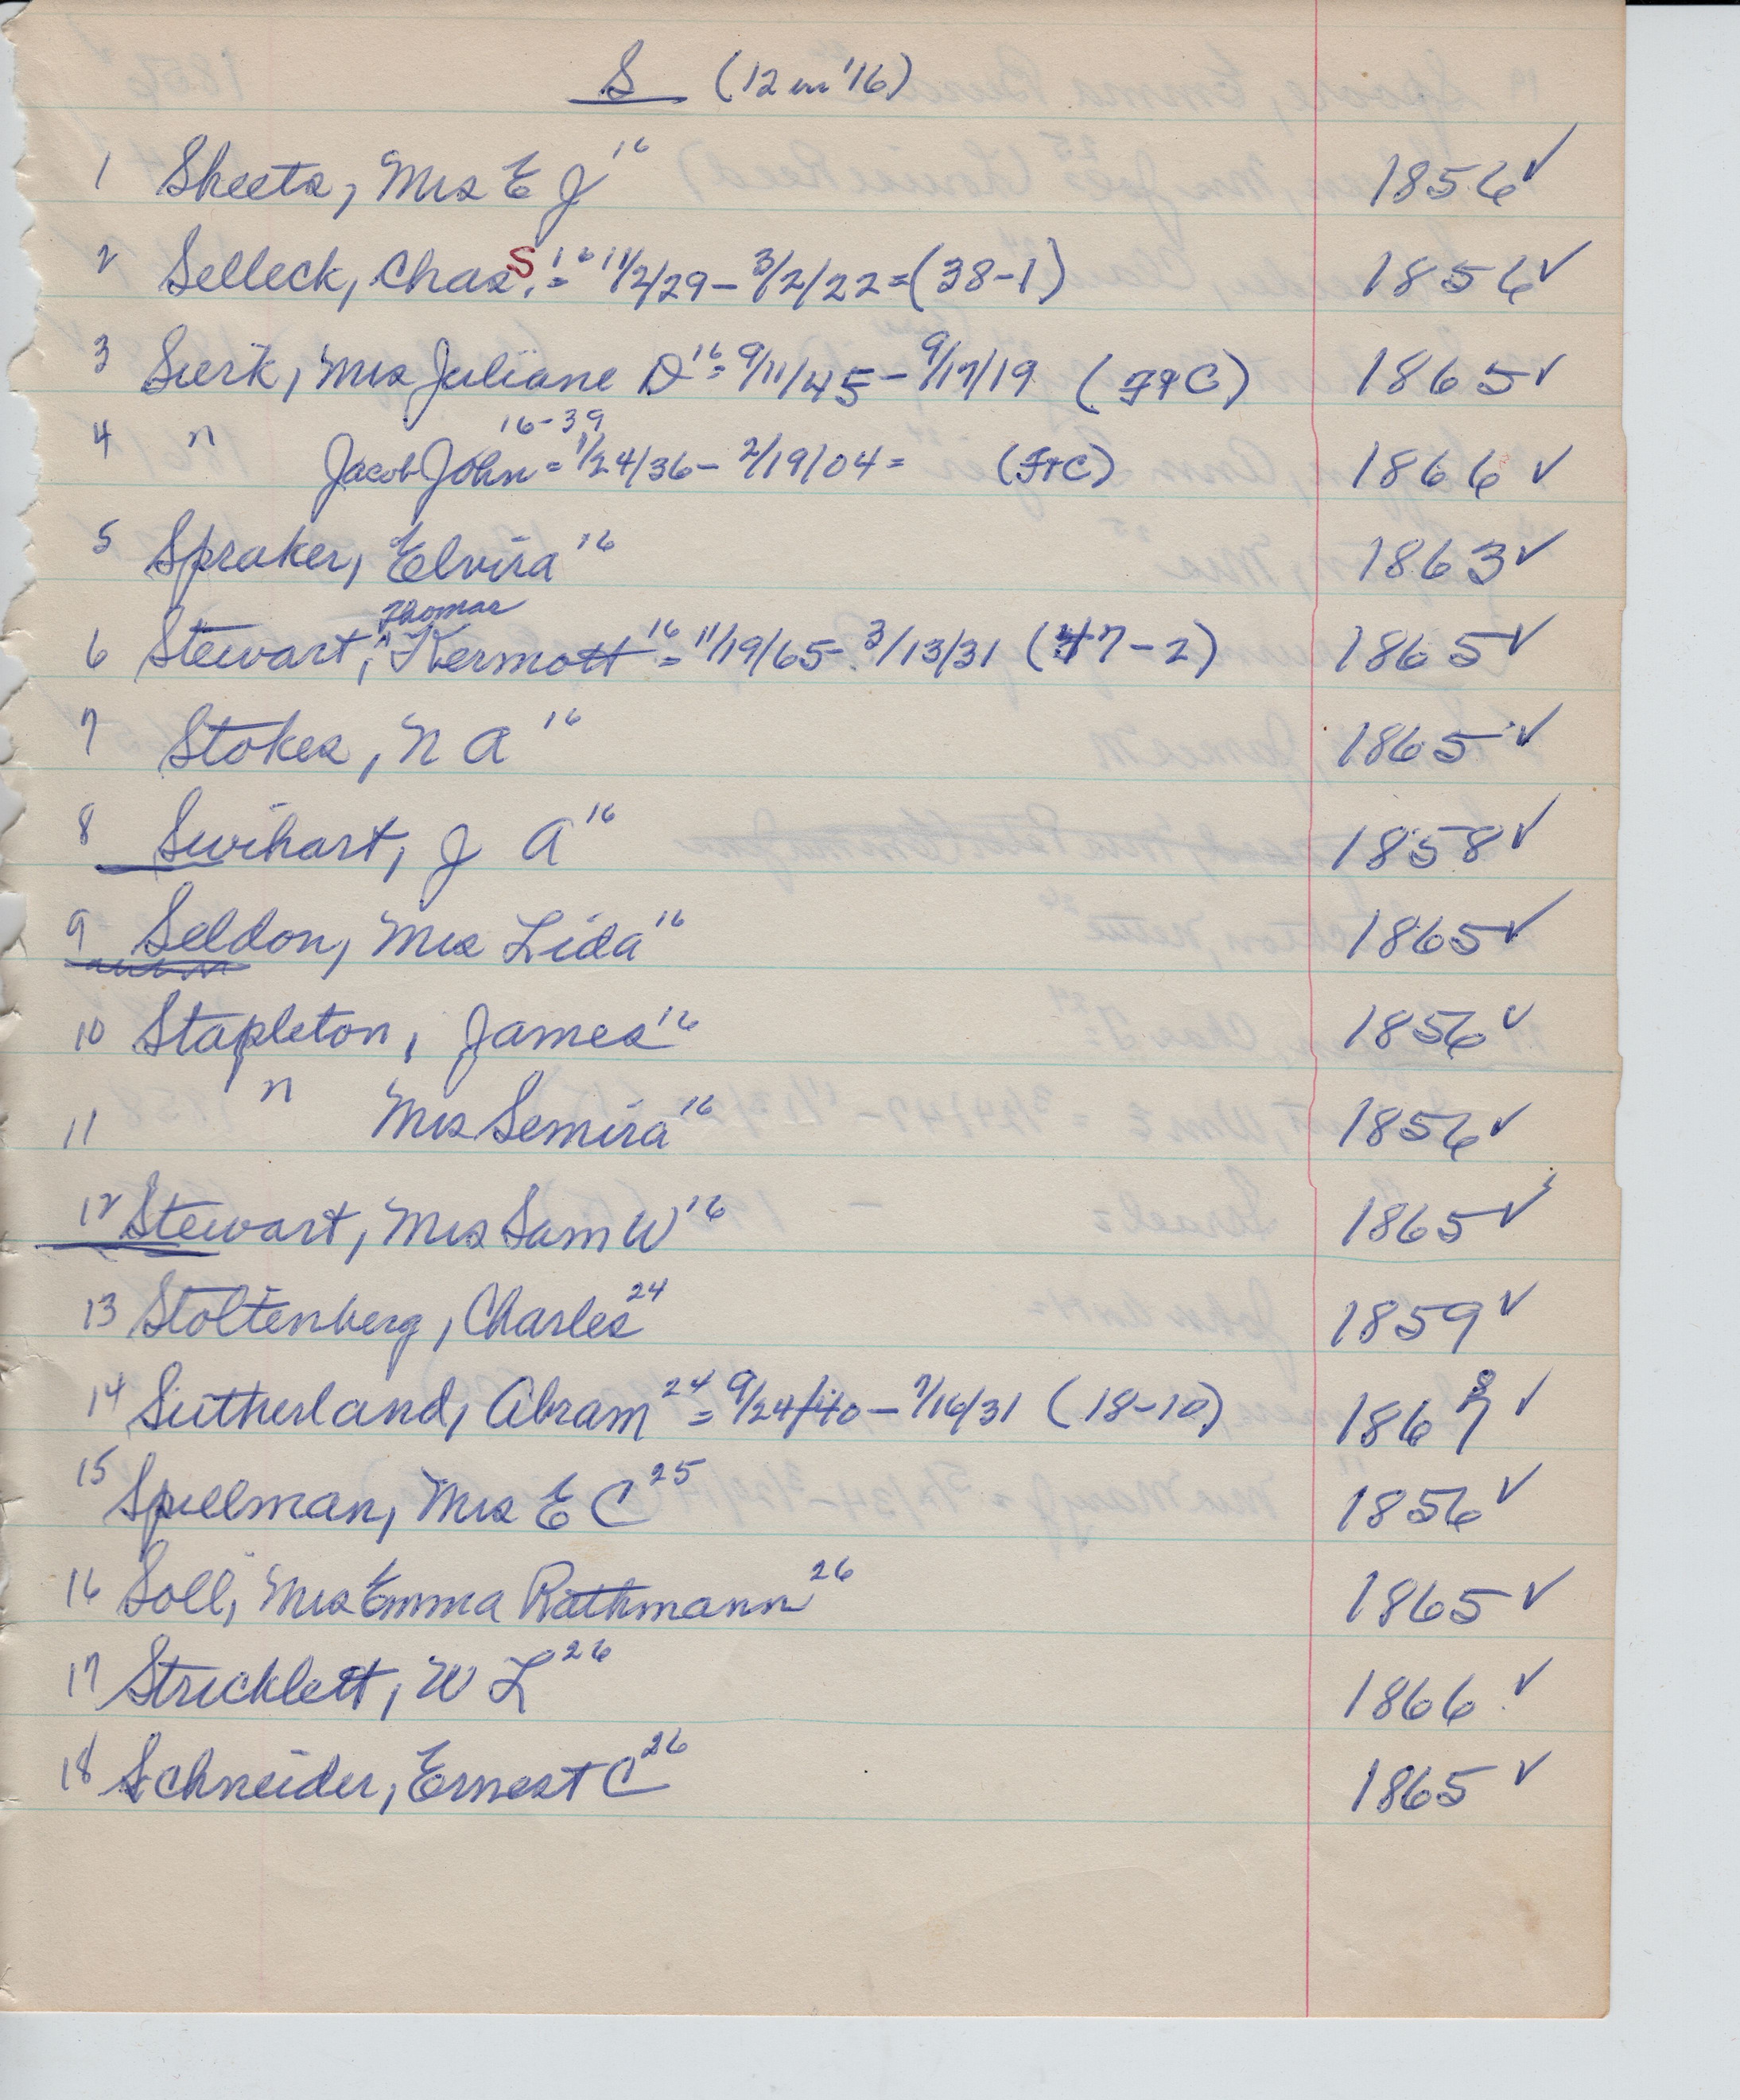 S (12 in '16)
1 Sheets, Mrs E J 16 1856 ✓
2 Selleck, Chas S. 16 = 11/2/29 – 3/2/22 = (38-1) 1856 ✓
3 Suerk, Mrs Juliane D 16 = 9/11/45 – 9/17/19 (FPC) 1865 ✓
4 " Jacob John 16-39 = 1/24/36 – 2/19/04 = (FPC) 1866 ✓
5 Spraker, Elvira 16 1863 ✓
6 Stewart, ^Thomas Kermott 16 = 11/19/65 – 3/13/31 (47-2) 1865 ✓
7 Stokes, N A 16 1865 ✓
8 Swihart, J A 16 1858 ✓
9 Seldon, Mrs Lida 16 1865 ✓
10 Stapleton, James 16 1856 ✓
11 " Mrs Semira 16 1856 ✓
12 Stewart, Mrs Sam W 16 1865 ✓
13 Stoltenberg, Charles 24 1859 ✓
14 Sutherland, Abram 24 = 9/24/40 – 7/16/31 (18-10) 1867 8 ✓
15 Spellman, Mrs E C 25 1856 ✓
16 Soll, Mrs Emma Rathmann 26 1865 ✓
17 Stricklett, W L 26 1866 ✓
18 Schneider, Ernest C 26 1865 ✓